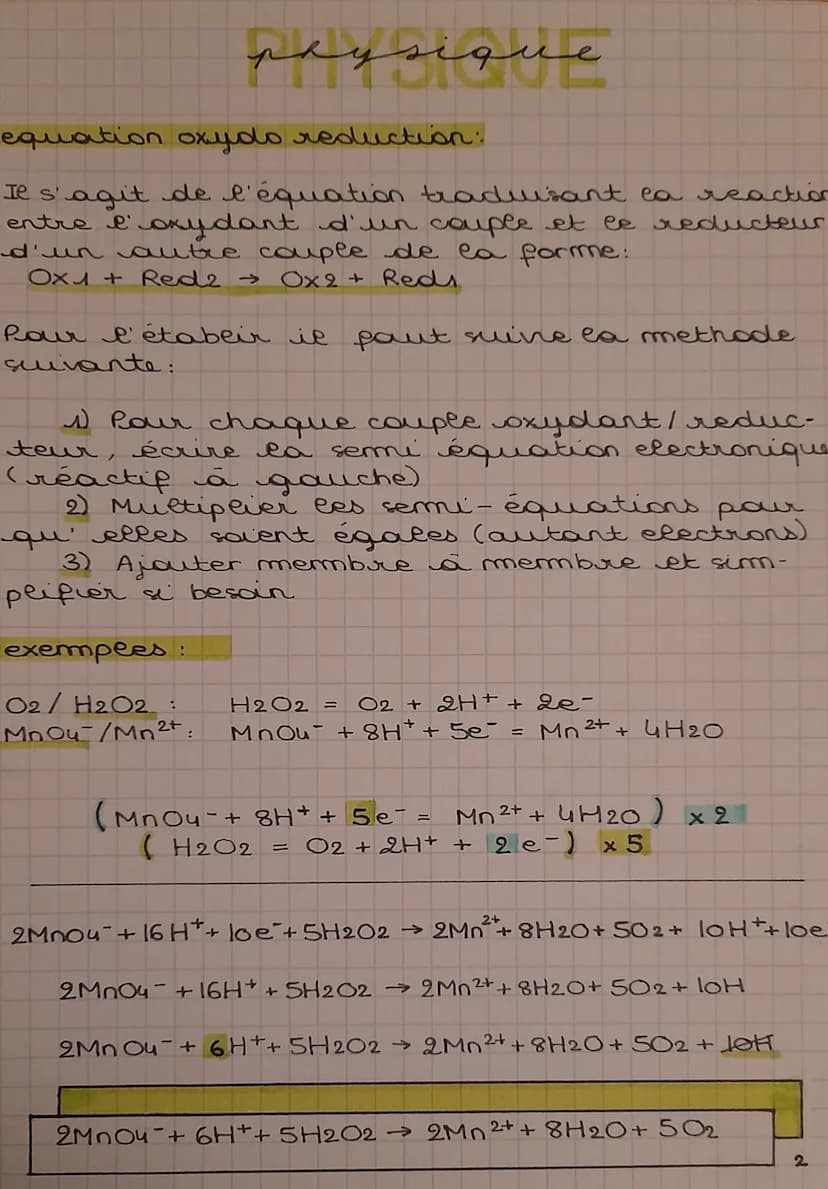 PHYSIQUE
physique
equation oxydo reduction:
Il s'agit de l'équation traduisant la reaction
entre l'oxydant d'un couple et le reducteur
d'un autre couple de la forme:
Ox1 + Red2 → Ox2 + Red1
Pour l'établir il faut suivre la methode
suivante:
1) Pour chaque couple oxydant / reduc-
teur, écrire la semi équation electronique
(réactif à gauche)
2) Multiplier les semi-équations pour
qu'elles soient égales (autant electrons)
3) Ajouter membre à membre et sim-
plifier si besoin
exemples:
O2 / H2O2 : H2O2 = O2 + 2H+ + 2e-
MnO4-/Mn2+: MnO4- + 8H+ + 5e- = Mn2+ + 4H2O
(MnO4- + 8H+ + 5e- = Mn2+ + 4H2O) x 2
(H2O2 = O2 + 2H+ + 2e-) x 5
2MnO4- + 16H+ + 10e- + 5H2O2 → 2Mn2+ + 8H2O + 5O2 + 10H+ + 10e
2MnO4- + 16H+ + 5H2O2 → 2Mn2+ + 8H2O + 5O2 + 10H
2MnO4- + 6H+ + 5H2O2 → 2Mn2+ + 8H2O + 5O2 + 10H
2MnO4- + 6H+ + 5H2O2 → 2Mn2+ + 8H2O + 5O2
2